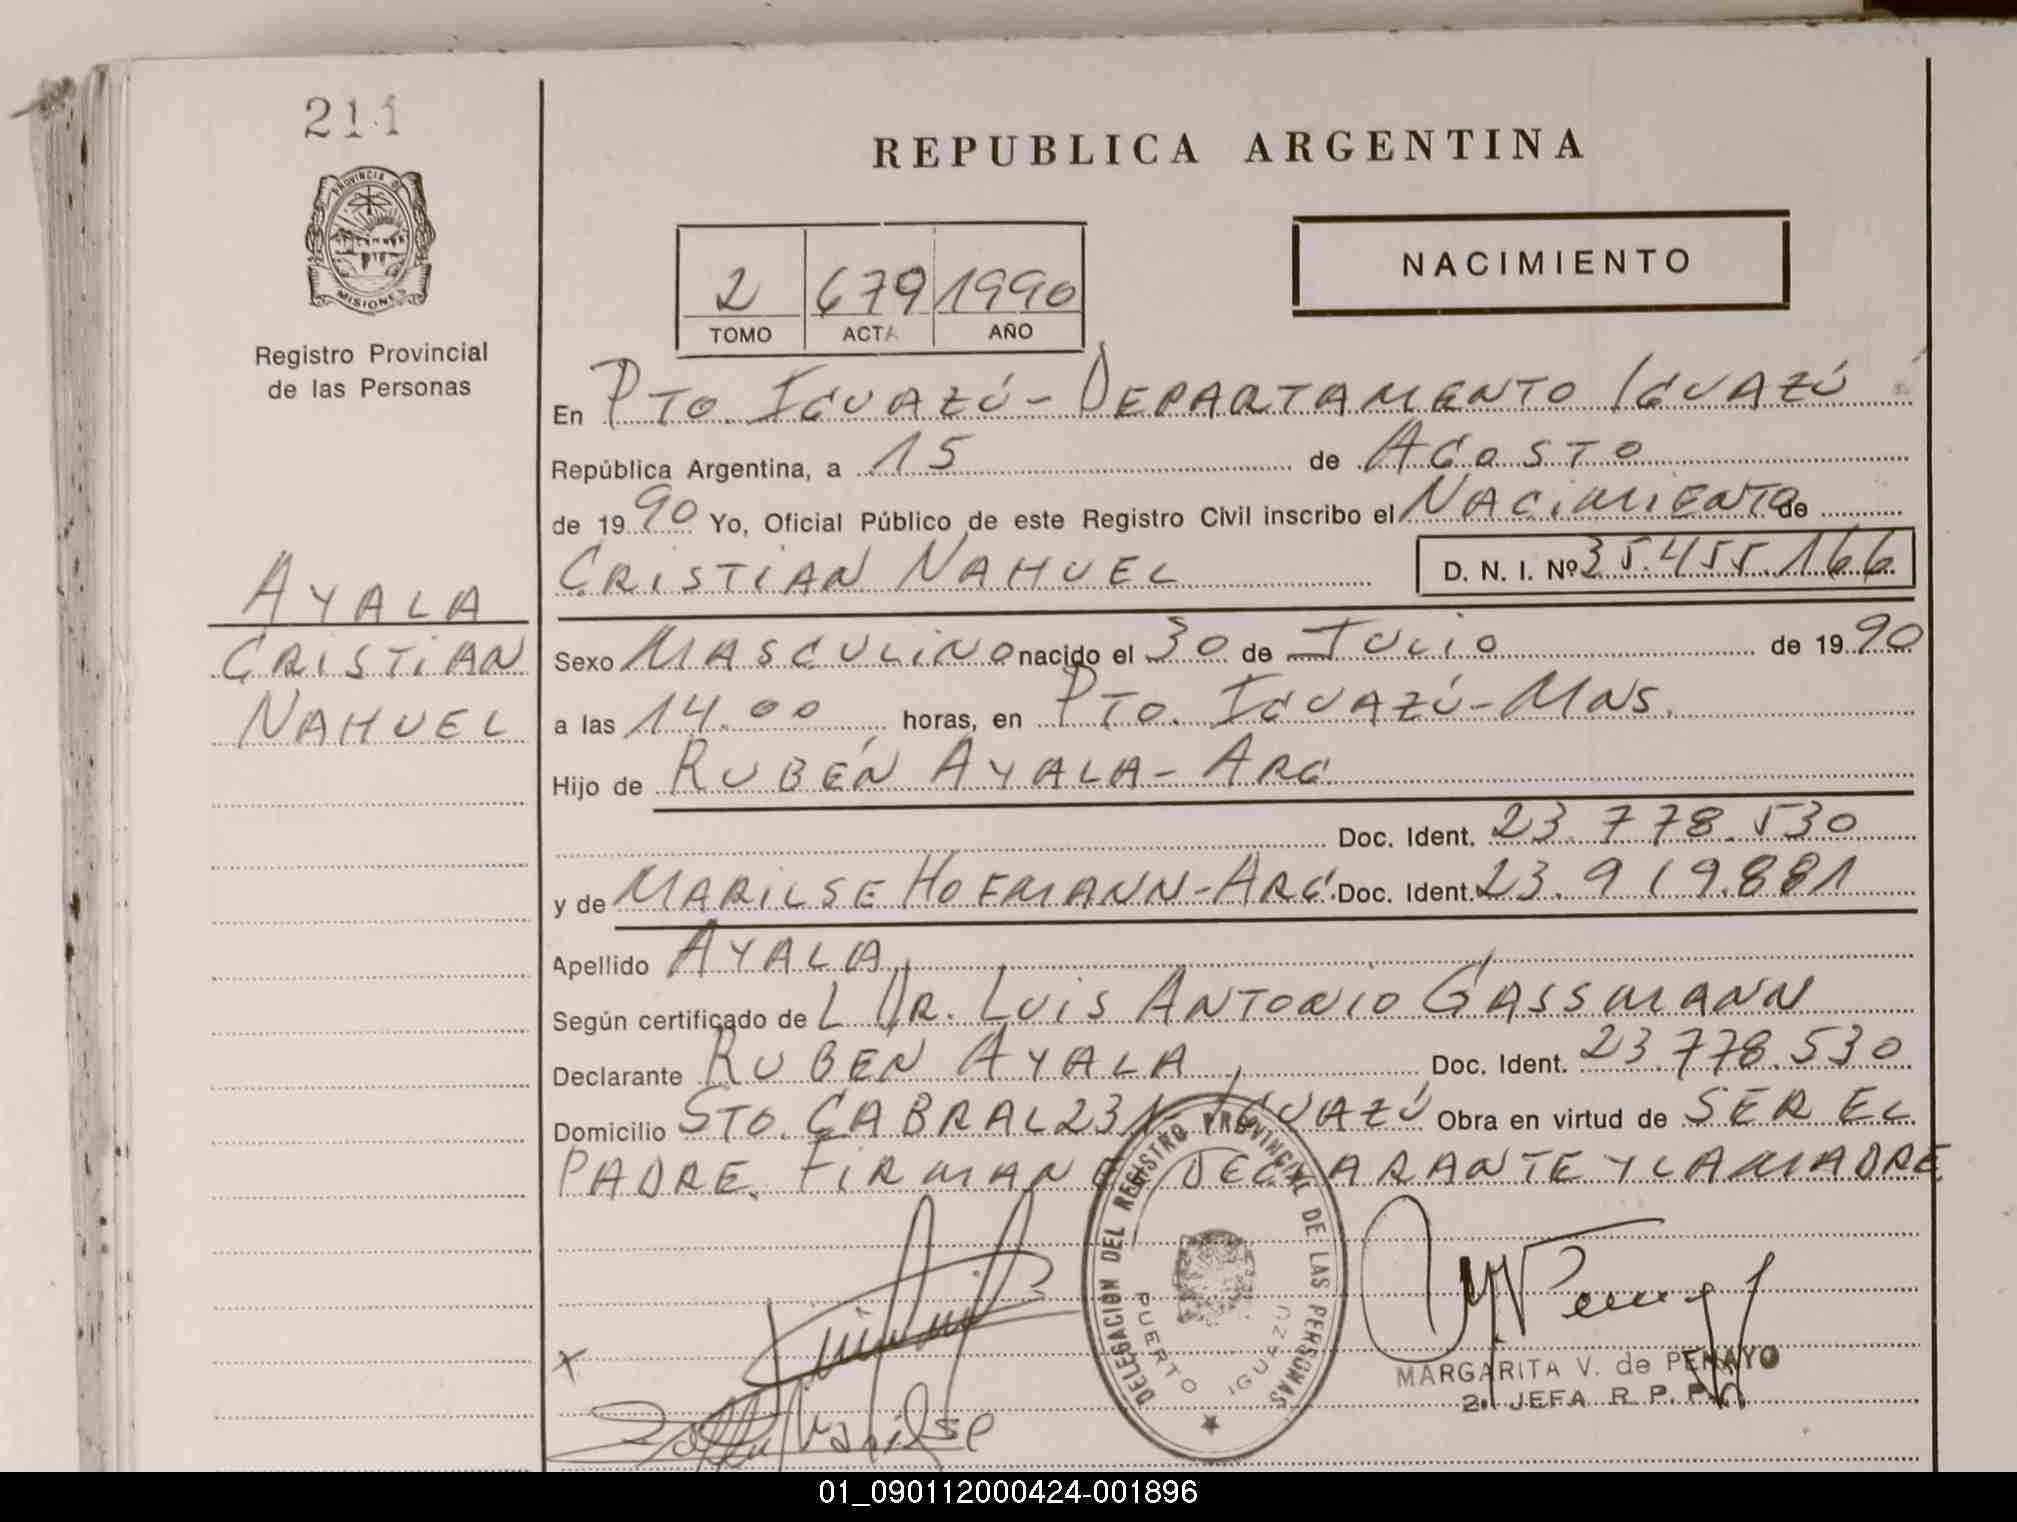 211
PROVINCIA DE
MISIONES
Registro Provincial
de las Personas
REPUBLICA ARGENTINA
NACIMIENTO
2 679 1990
TOMO ACTA AÑO
En PTO. IGUAZÚ - DEPARTAMENTO IGUAZÚ
República Argentina, a 15 de AGOSTO
de 1990 Yo, Oficial Público de este Registro Civil inscribo el NACIMIENTO de
CRISTIAN NAHUEL D. N. I. Nº 35.455.166
AYALA
CRISTIAN
NAHUEL
Sexo MASCULINO nacido el 30 de JULIO de 1990
a las 14.00 horas, en PTO. IGUAZÚ - MNS.
Hijo de RUBÉN AYALA - ARG.
Doc. Ident. 23.778.530
y de MARILSE HOFMANN - ARG. Doc. Ident. 23.919.881
Apellido AYALA
Según certificado de L DR. LUIS ANTONIO GASSMANN
Declarante RUBEN AYALA Doc. Ident. 23.778.530
Domicilio STO. CABRAL 231 - IGUAZÚ Obra en virtud de SER EL
PADRE. FIRMAN EL DECLARANTE Y LA MADRE
DELEGACION DEL REGISTRO PROVINCIAL DE LAS PERSONAS
PUERTO IGUAZU
x
MARGARITA V. de PENAYO
2. JEFA R. P. P.
Marilse
01_090112000424-001896